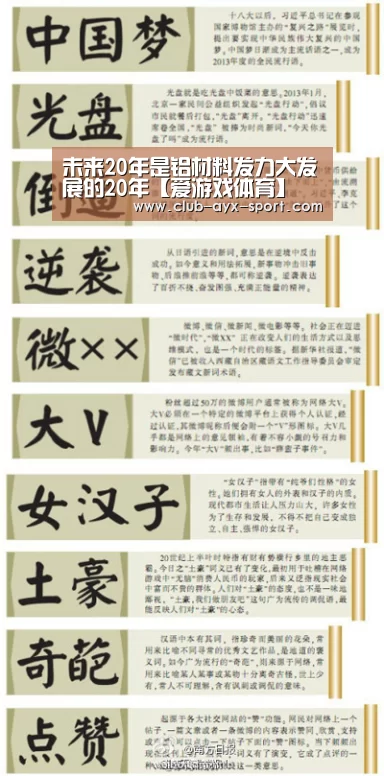 中国梦
十八大以后，习近平总书记在参观
国家博物馆主办的“复兴之路”展览时，
提出要实现中华民族伟大复兴的中国
梦。中国梦日渐成为主流话语之一，成为
2013年度的全民流行语。
光盘
光盘就是吃光盘中饭菜的意思。2013年1月，
北京一家民间公益组织发起“光盘行动”，倡议
市民就餐后打包，“光盘”离开。“光盘行动”迅速
席卷全国，“光盘”被捧为时尚新词，“今天你光
盘了吗”成为流行语。
倒逼
未来20年是铝材料发力大发
展的20年【爱游戏体育】
www.club-ayx-sport.com
逆袭
从日语引进的新词，意思是在逆境中反击
成功。如今意义和用法拓展，新事物冲击旧事
物、后浪推前浪等等，都可称逆袭。逆袭表达
了百折不挠、奋发图强、充满正能量的精神。
微××
微博、微信、微新闻、微电影等等。社会正在迈进
“微时代”，“微XX”正在改变人们的生活方式以及思
维模式，也是一个时代的标签。据新华社报道，“微
信”已被收入西藏自治区藏语文工作指导委员会审定
发布藏文新词术语。
大V
粉丝超过50万的微博用户通常被称为网络大V。
大V必须在一个特定的微博平台上获得个人认证，经
过认证，其微博昵称后便会附一个“V”形图标。大V几
乎都是网络上的意见领袖，有着不容小觑的号召力和
影响力。今年“大V”频出事，比如“薛蛮子事件”。
女汉子
“女汉子”指带有“纯爷们性格”的女
性。她们拥有女人的外表和汉子的内质。
现代都市生活让人压力山大，许多女性
为了生存和发展，不得不把自己变成独
立、自主、强悍的女汉子。
土豪
20世纪上半叶时特指有财有势横行乡里的地主恶
霸。今日之“土豪”词义已有了变化，最初用于吐槽在网络
游戏中“无脑”消费人民币的玩家，后来又泛指现实社会
中富而不贵的群体。人们对“土豪”的态度，也不是一味地
鄙视，“土豪，我们做朋友吧”这句广为流传的调侃语，最
能反映人们对“土豪”的心态。
奇葩
汉语中本有其词，指珍奇而美丽的花朵，常
用来比喻不同寻常的优秀文艺作品，是地道的褒
义词。如今广为流行的“奇葩”，则来源于网络，常
用来比喻某人某事或某物十分离奇古怪，世上少
有，常人不可理解，含有讽刺或调侃的意味。
点赞
起源于各大社交网站的“赞”功能。网民对网络上一个
帖子、一篇文章或者一条微博的内容表示赞同、欣赏、支持
@南方日报